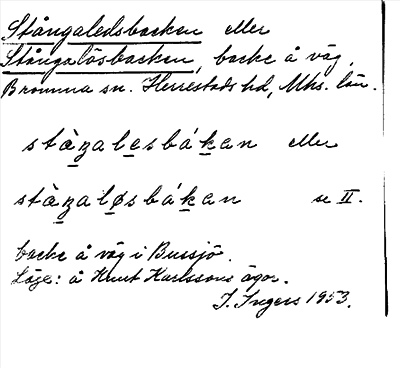 Stångaledsbacken eller
Stångalösbacken, backe å väg,
Bromma sn. Herrestads hd, Mhs. län.
stàŋalesbákan eller
stàŋaløsbákan se II.
backe å väg i Bussjö.
Läge: å Knut Karlssons ägor.
I. Ingers 1953.